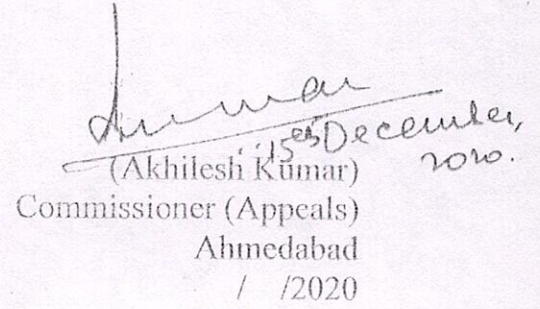 Kumar
15th December,
2020.
(Akhilesh Kumar)
Commissioner (Appeals)
Ahmedabad
/ /2020